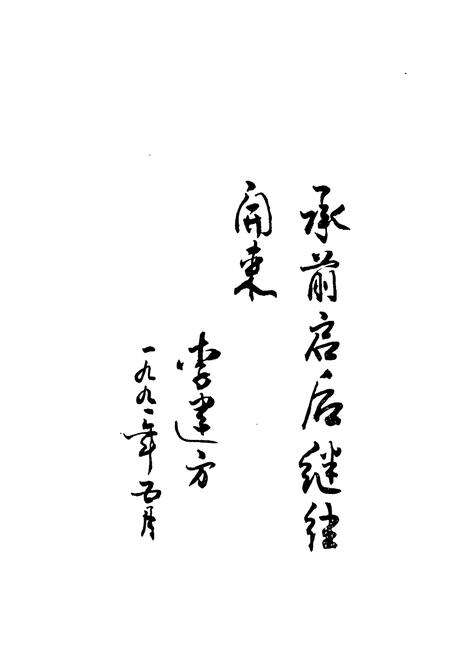 承前启后继往
開来
李建方
一九九一年五月